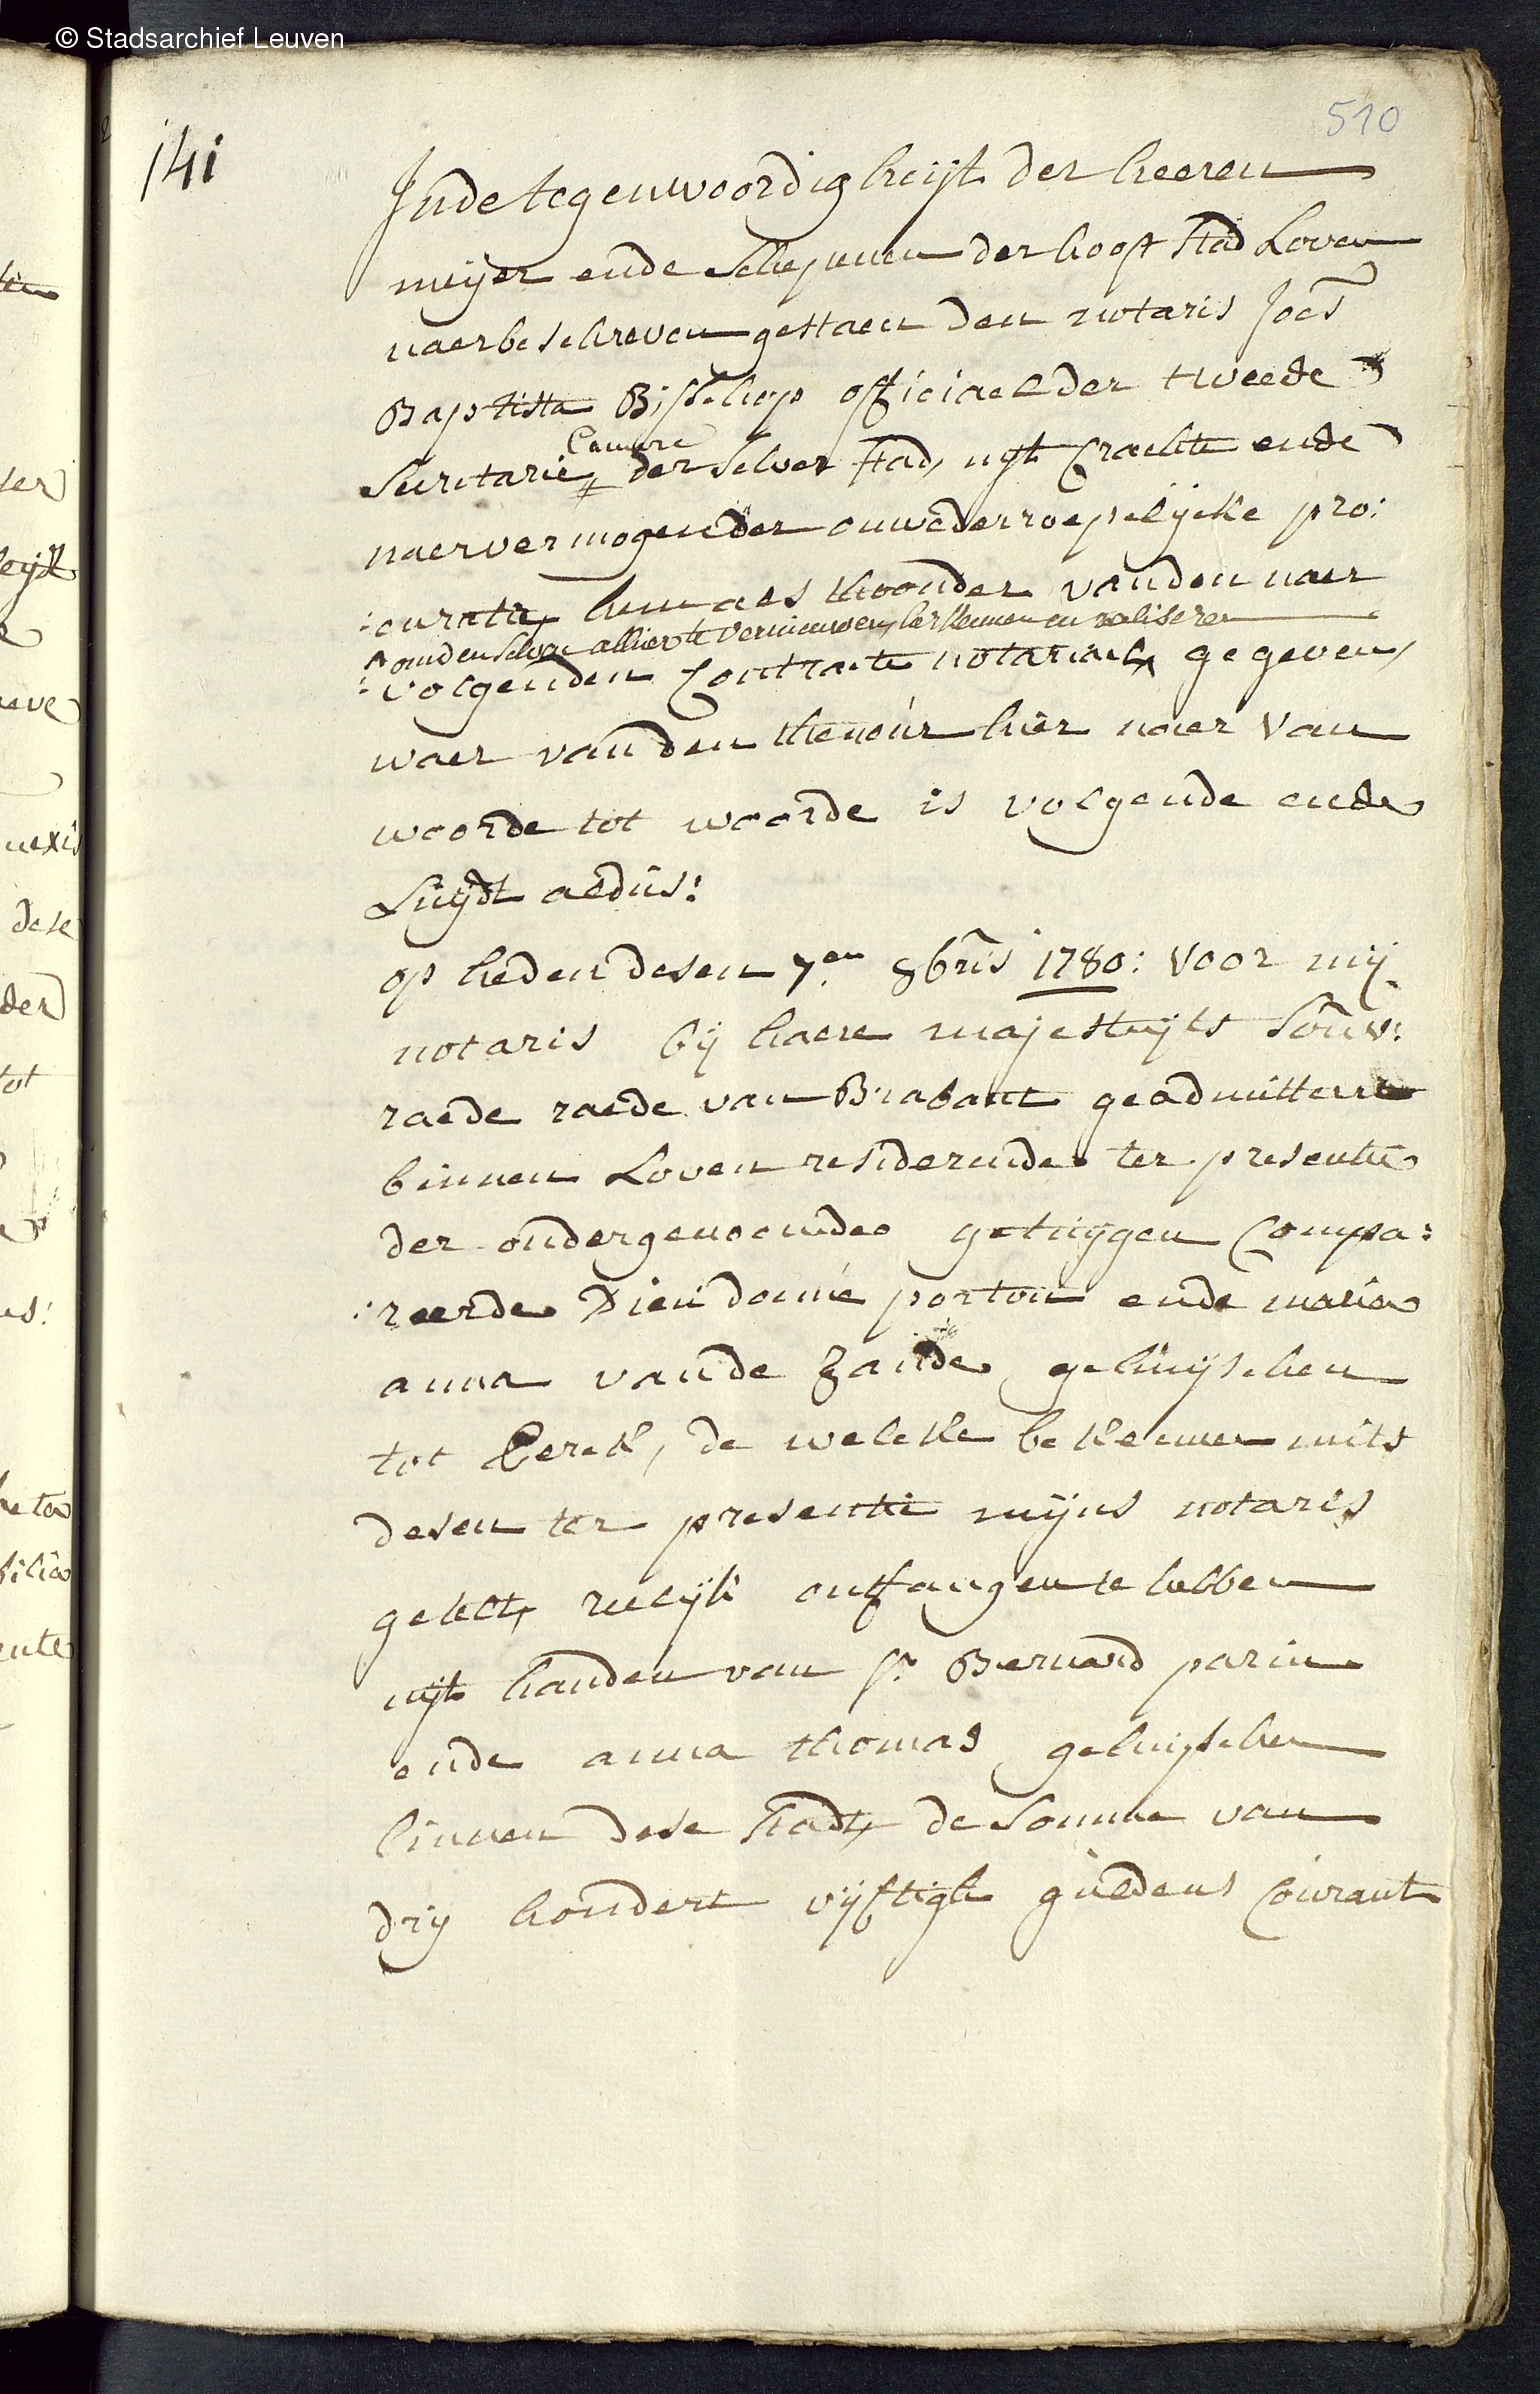 © Stadsarchief Leuven
510
141
Inde tegenwoordigheijt der heeren
meijer ende schepenen der hooft stad Loven
naerbeschreven gestaen den notaris Joēs
Baptista Bisschop officiael der tweede
Camere
secretarie der selver stad, uyt crachte ende
naervermogen der onwederroepelijcke pro:
:curatie, hem als thoonder vanden naer
om den selven alhier te vernieuwen, herkennen en realiseren
:volgenden Contracte notariael gegeven,
waer van den theneur hier naer van
woorde tot woorde is volgende ende
Luijdt aldus:
op heden desen 7en 8bris 1780: voor mij
notaris bij haere majesteijts souv:
raede raede van Brabant geadmitteert
binnen Loven residerende ter presentie
der ondergenoemde getuijgen Compa:
:reerde Dieudonné porton ende maria
anna vande Zande gehuijschen
tot Berck, de welcke bekennen mits
desen ter presentie mijns notaris
getelt, reelijk ontfangen te hebben
uijt handen van sr. Bernard parin
ende anna thomas gehuijschen
binnen dese stadt, de somme van
dry hondert vijftigh guldens Courant